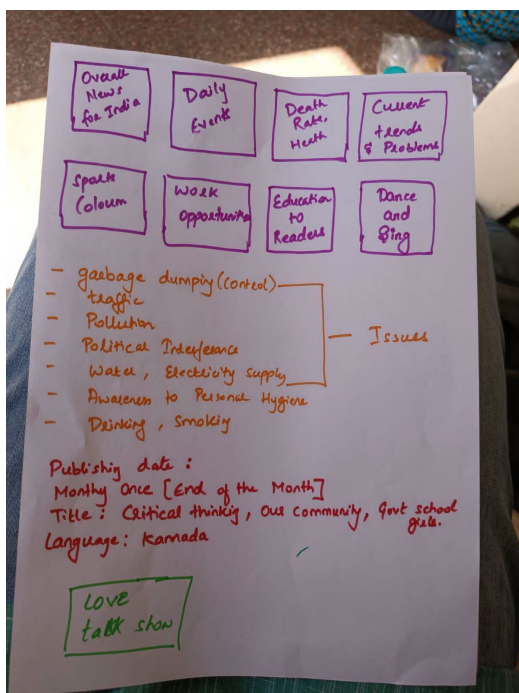 Overall
News
for India
Daily
Events
Death
Rate,
Heath
Current
trends
& Problems
Sports
Coloum
Work
Opportunities
Education
to
Readers
Dance
and
Sing
- garbage dumping (control)
- traffic
- Pollution
- Political Interferance
- Water, Electricity supply
- Awareness to Personal Hygiene
- Drinking, Smoking
Issues
Publishing date :
Monthy Once [End of the Month]
Title : Critical thinking, Our community, Govt school
girls.
Language : Kannada
LOVE
talk show